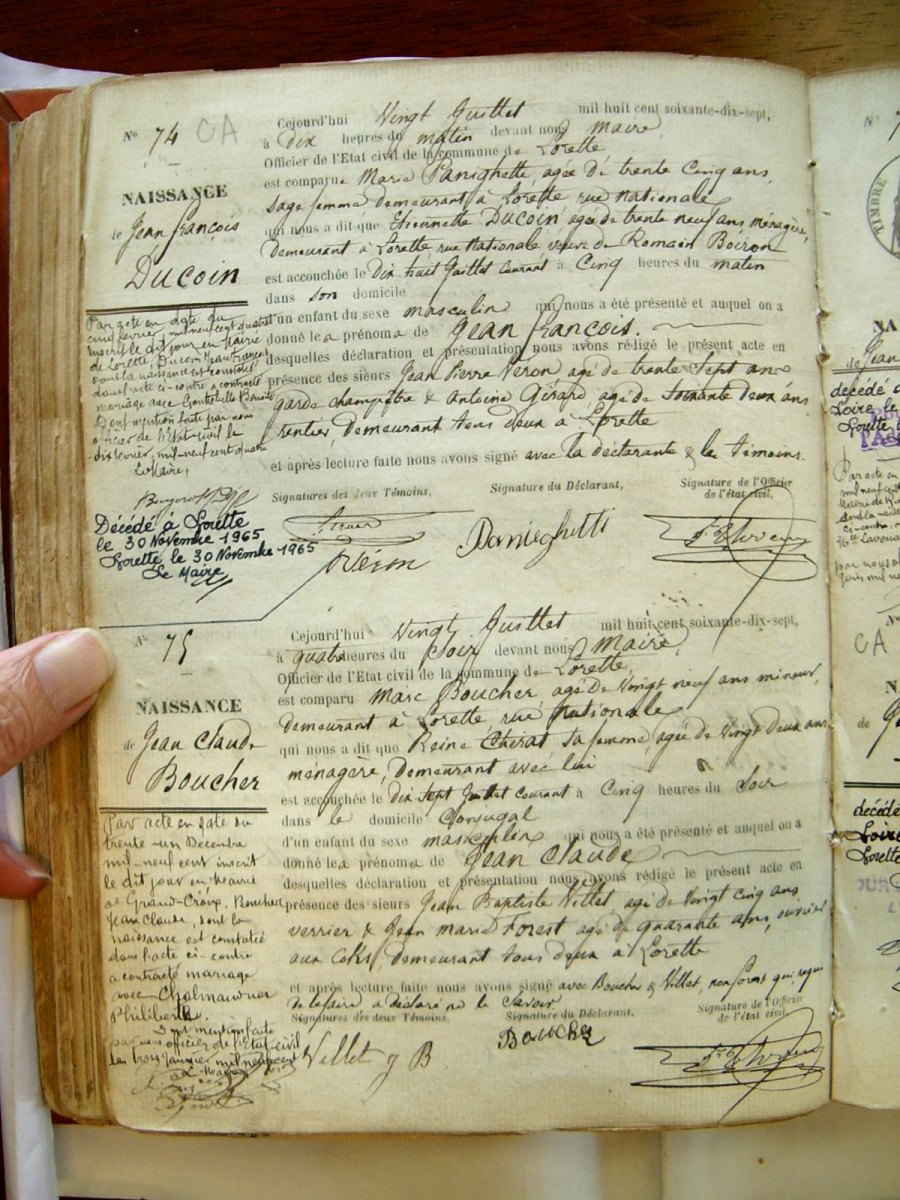 N° 74 CA
NAISSANCE
de Jean François
Ducoin
Par acte en date du
cinq février, mil neuf cent quatre
inscrit le dit jour en Mairie
de Lorette, Ducoin Jean François
dont la naissance est constatée
dans l'acte ci-contre a contracté
mariage avec Benoite
Dont mention faite par nous
officier de l'Etat-civil le
dix février, mil neuf cent quatre
Le Maire,
Décédé à Lorette
le 30 Novembre 1965
Lorette, le 30 Novembre 1965
Le Maire
Cejourd'hui Vingt Juillet mil huit cent soixante-dix-sept,
à dix heures du matin devant nous Maire
Officier de l'Etat civil de la commune de Lorette
est comparue Marie Panighette agée de trente Cinq ans,
sage femme demeurant à Lorette rue nationale
qui nous a dit que Etiennette Ducoin agée de trente neuf ans, ménagère,
demeurant à Lorette rue nationale veuve de Romain Boiron
est accouchée le Dix huit Juillet courant à Cinq heures du matin
dans son domicile
d'un enfant du sexe masculin qui nous a été présenté et auquel on a
donné les prénoms de Jean François.
desquelles déclaration et présentation nous avons rédigé le présent acte en
présence des sieurs Jean Pierre Véron agé de trente Sept ans
garde champêtre & Antoine Gérard, agé de soixante deux ans
rentier, demeurant tous deux à Lorette
et après lecture faite nous avons signé avec la déclarante & les témoins.
Signatures des deux Témoins,
Signature du Déclarant,
Signature de l'Officier
de l'état civil,
Véron
Panieghetti
N° 75
NAISSANCE
de Jean Claude
Boucher
Par acte en date du
trente-un Décembre
mil-neuf cent inscrit
le dit jour en Mairie
de Grand-Croix, Boucher
Jean Claude, dont la
naissance est constatée
dans l'acte ci-contre
a contracté mariage
avec
Philiberte.
Dont mention faite
par nous officier de l'Etat-civil
le trois Janvier mil neuf cent
Cejourd'hui Vingt Juillet mil huit cent soixante-dix-sept,
à quatre heures du Soir devant nous Maire
Officier de l'Etat civil de la commune de Lorette
est comparu Marc Boucher agé de Vingt neuf ans mineur,
demeurant à Lorette rue Nationale
qui nous a dit que Reine Cherat sa femme, agée de Vingt deux ans
ménagère, demeurant avec lui
est accouchée le dix sept Juillet courant à Cinq heures du Soir
dans le domicile Conjugal
d'un enfant du sexe masculin qui nous a été présenté et auquel on a
donné les prénoms de Jean Claude
desquelles déclaration et présentation nous avons rédigé le présent acte en
présence des sieurs Jean Baptiste Villet agé de Vingt Cinq ans
verrier & Jean marie Forest agé de quarante ans, ouvrier
aux Coks, demeurant tous deux à Lorette
et après lecture faite nous avons signé avec Boucher & Villet, non forest qui, requis
de le faire a déclaré ne le Savoir
Signatures des deux Témoins,
Signature du Déclarant,
Signature de l'Officier
de l'état civil
Villet J B
Boucher
TIMBRE